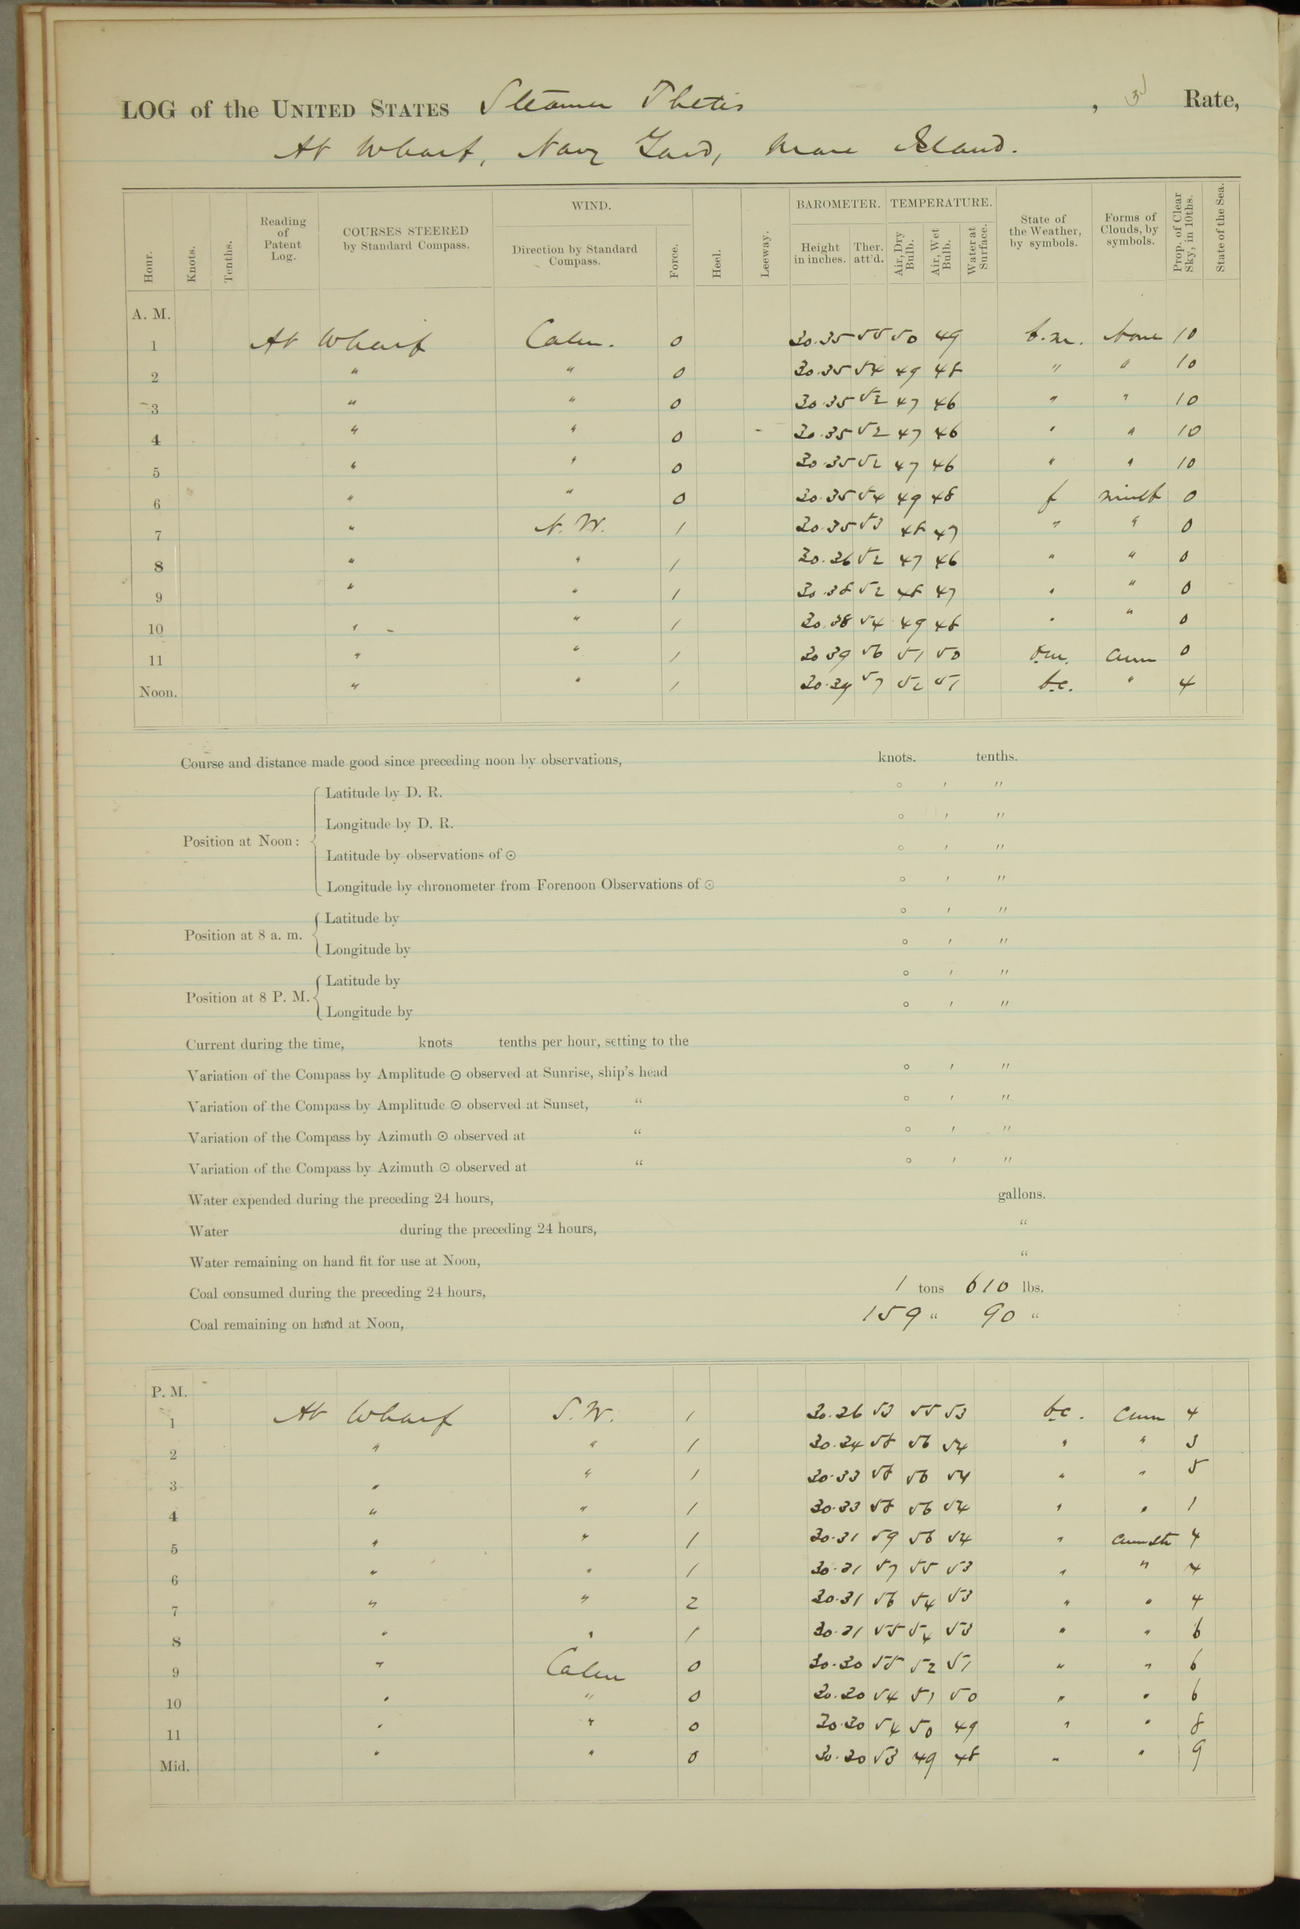 LOG of the UNITED STATES Steamer Thetis, 3d Rate,
At Wharf, Navy Yard, Mare Island.
Hour. Knots. Tenths. Reading of Patent Log. COURSES STEERED by Standard Compass. WIND. Direction by Standard Compass. Force. Heel. Leeway. BAROMETER. Height in inches. Ther. att'd. TEMPERATURE. Air, Dry Bulb. Air, Wet Bulb. Water at Surface. State of the Weather, by symbols. Forms of Clouds, by symbols. Prop. of Clear Sky, in 10ths. State of the Sea.
A. M.
1 At Wharf Calm. 0 30.35 55 50 49 b.m. None 10
2 " " 0 30.35 54 49 48 " " 10
3 " " 0 30.35 52 47 46 " " 10
4 " " 0 30.35 52 47 46 " " 10
5 " " 0 30.35 52 47 46 " " 10
6 " " 0 30.35 54 49 48 f 0
7 " N.W. 1 30.35 53 48 47 " " 0
8 " " 1 30.36 52 47 46 " " 0
9 " " 1 30.38 52 48 47 " " 0
10 " " 1 30.38 54 49 48 " " 0
11 " " 1 30 39 56 51 50 cum 0
Noon. " " 1 30.39 57 52 51 b.c. " 4
Course and distance made good since preceding noon by observations, knots. tenths.
Position at Noon: Latitude by D. R. ° ′ ″
Longitude by D. R. ° ′ ″
Latitude by observations of ☉ ° ′ ″
Longitude by chronometer from Forenoon Observations of ☉ ° ′ ″
Position at 8 a. m. Latitude by ° ′ ″
Longitude by ° ′ ″
Position at 8 P. M. Latitude by ° ′ ″
Longitude by ° ′ ″
Current during the time, knots tenths per hour, setting to the
Variation of the Compass by Amplitude ☉ observed at Sunrise, ship's head ° ′ ″
Variation of the Compass by Amplitude ☉ observed at Sunset, " ° ′ ″
Variation of the Compass by Azimuth ☉ observed at " ° ′ ″
Variation of the Compass by Azimuth ☉ observed at " ° ′ ″
Water expended during the preceding 24 hours, gallons.
Water during the preceding 24 hours, "
Water remaining on hand fit for use at Noon, "
Coal consumed during the preceding 24 hours, 1 tons 610 lbs.
Coal remaining on hand at Noon, 159 " 90 "
P. M.
1 At Wharf S.W. 1 30.36 53 55 53 b.c. cum 4
2 " " 1 30.34 58 56 54 " " 3
3 " " 1 30.33 58 56 54 " " 5
4 " " 1 30.33 58 56 54 " " 1
5 " " 1 30.31 59 56 54 " cum str 4
6 " " 1 30.31 57 55 53 " " 4
7 " " 2 30.31 56 54 53 " " 4
8 " " 1 30.31 55 54 53 " " 6
9 " Calm 0 30.30 55 52 51 " " 6
10 " " 0 30.30 54 51 50 " " 6
11 " " 0 30.30 54 50 49 " " 8
Mid. " " 0 30.30 53 49 48 " " 9